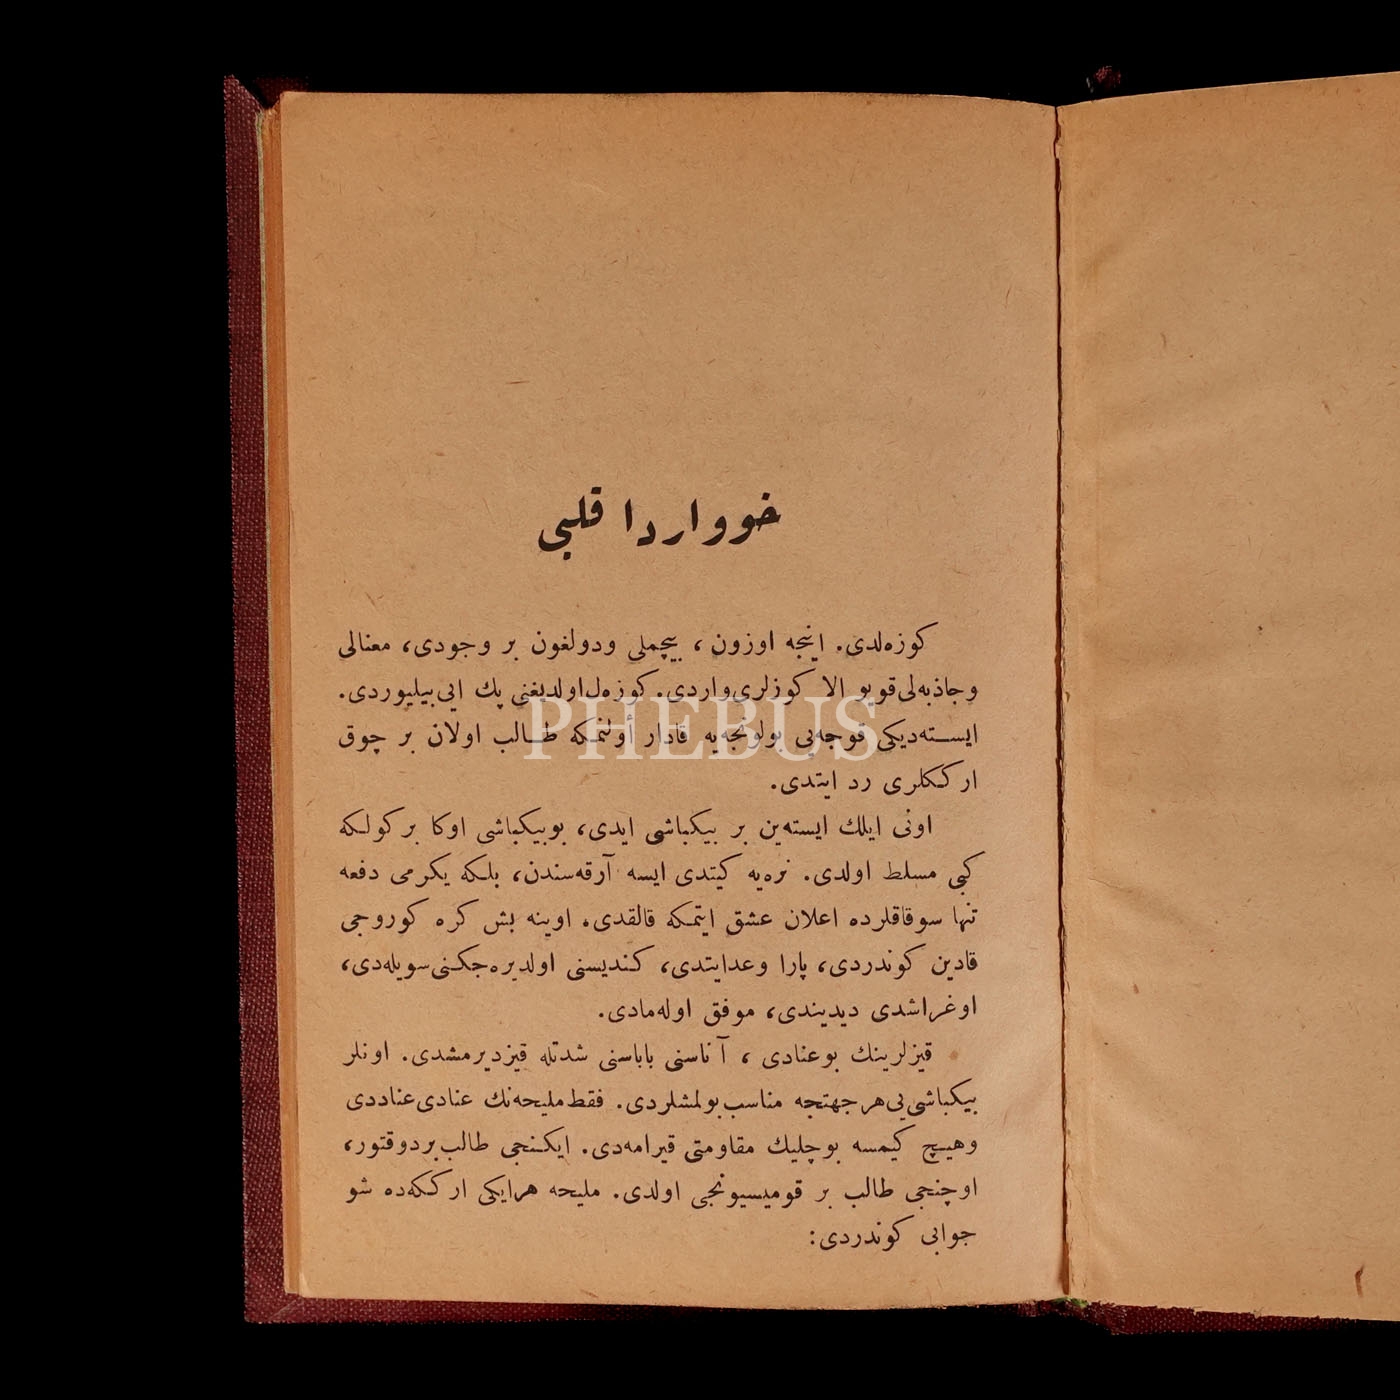 خوواردا قلبی
كوزەلدی. اینجه اوزون، بیچملی ودولغون بر وجودی، معنالی
وجاذبه‌لی قویو الا كوزلری واردی. كوزەل اولدیغنی پك ایی بیلیوردی.
ایسته‌دیكی قوجه‌یی بولونجه‌یه قادار أولنمكه طالب اولان بر چوق
ارككلری رد ایتدی.
اونی ایلك ایسته‌ین بر بیكباشی ایدی، بو بیكباشی اوكا بر كولكه
كبی مسلط اولدی. نره‌یه كیتدی ایسه آرقه‌سندن، بلكه یكرمی دفعه
تنها سوقاقلرده اعلان عشق ایتمكه قالقدی. اوینه بش كره كوروجی
قادین كوندردی، پارا وعدایتدی، كندیسنی اولدیره‌جكنی سویله‌دی،
اوغراشدی دیدیندی، موفق اوله‌مادی.
قیزلرینك بو عنادی، آناسنی باباسنی شدتله قیزدیرمشدی. اونلر
بیكباشی‌یی هر جهتجه مناسب بولمشلردی. فقط ملیحه‌نك عنادی عناددی
وهیچ كیمسه بو چلیك مقاومتی قیرامه‌دی. ایكنجی طالب بر دوقتور،
اوچنجی طالب بر قومیسیونجی اولدی. ملیحه هر ایكی ارككه‌ده شو
جوابی كوندردی:
PHEBUS